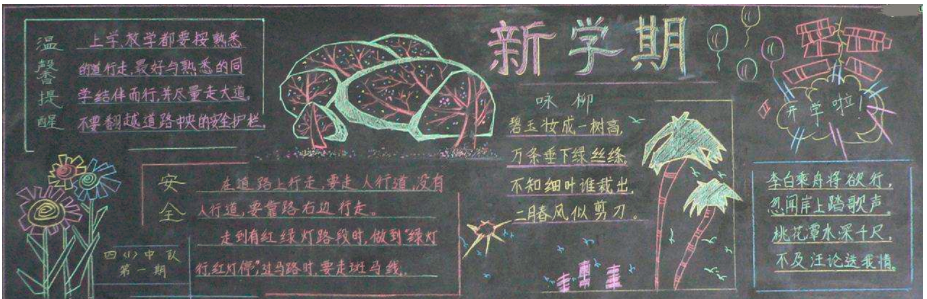 温馨提醒
上学、放学都要按熟悉
的道行走,最好与熟悉的同
学结伴而行,并尽量走大道,
不要翻越道路中央的安全护栏。
新学期
咏柳
碧玉妆成一树高,
万条垂下绿丝绦,
不知细叶谁裁出,
二月春风似剪刀。
开学啦!
安全
在道路上行走,要走人行道,没有
人行道,要靠路右边行走。
走到有红绿灯路段时,做到“绿灯
行,红灯停”,过马路时,要走斑马线。
四(1)中队
第一期
李白乘舟将欲行,
忽闻岸上踏歌声。
桃花潭水深千尺,
不及汪论送我情。